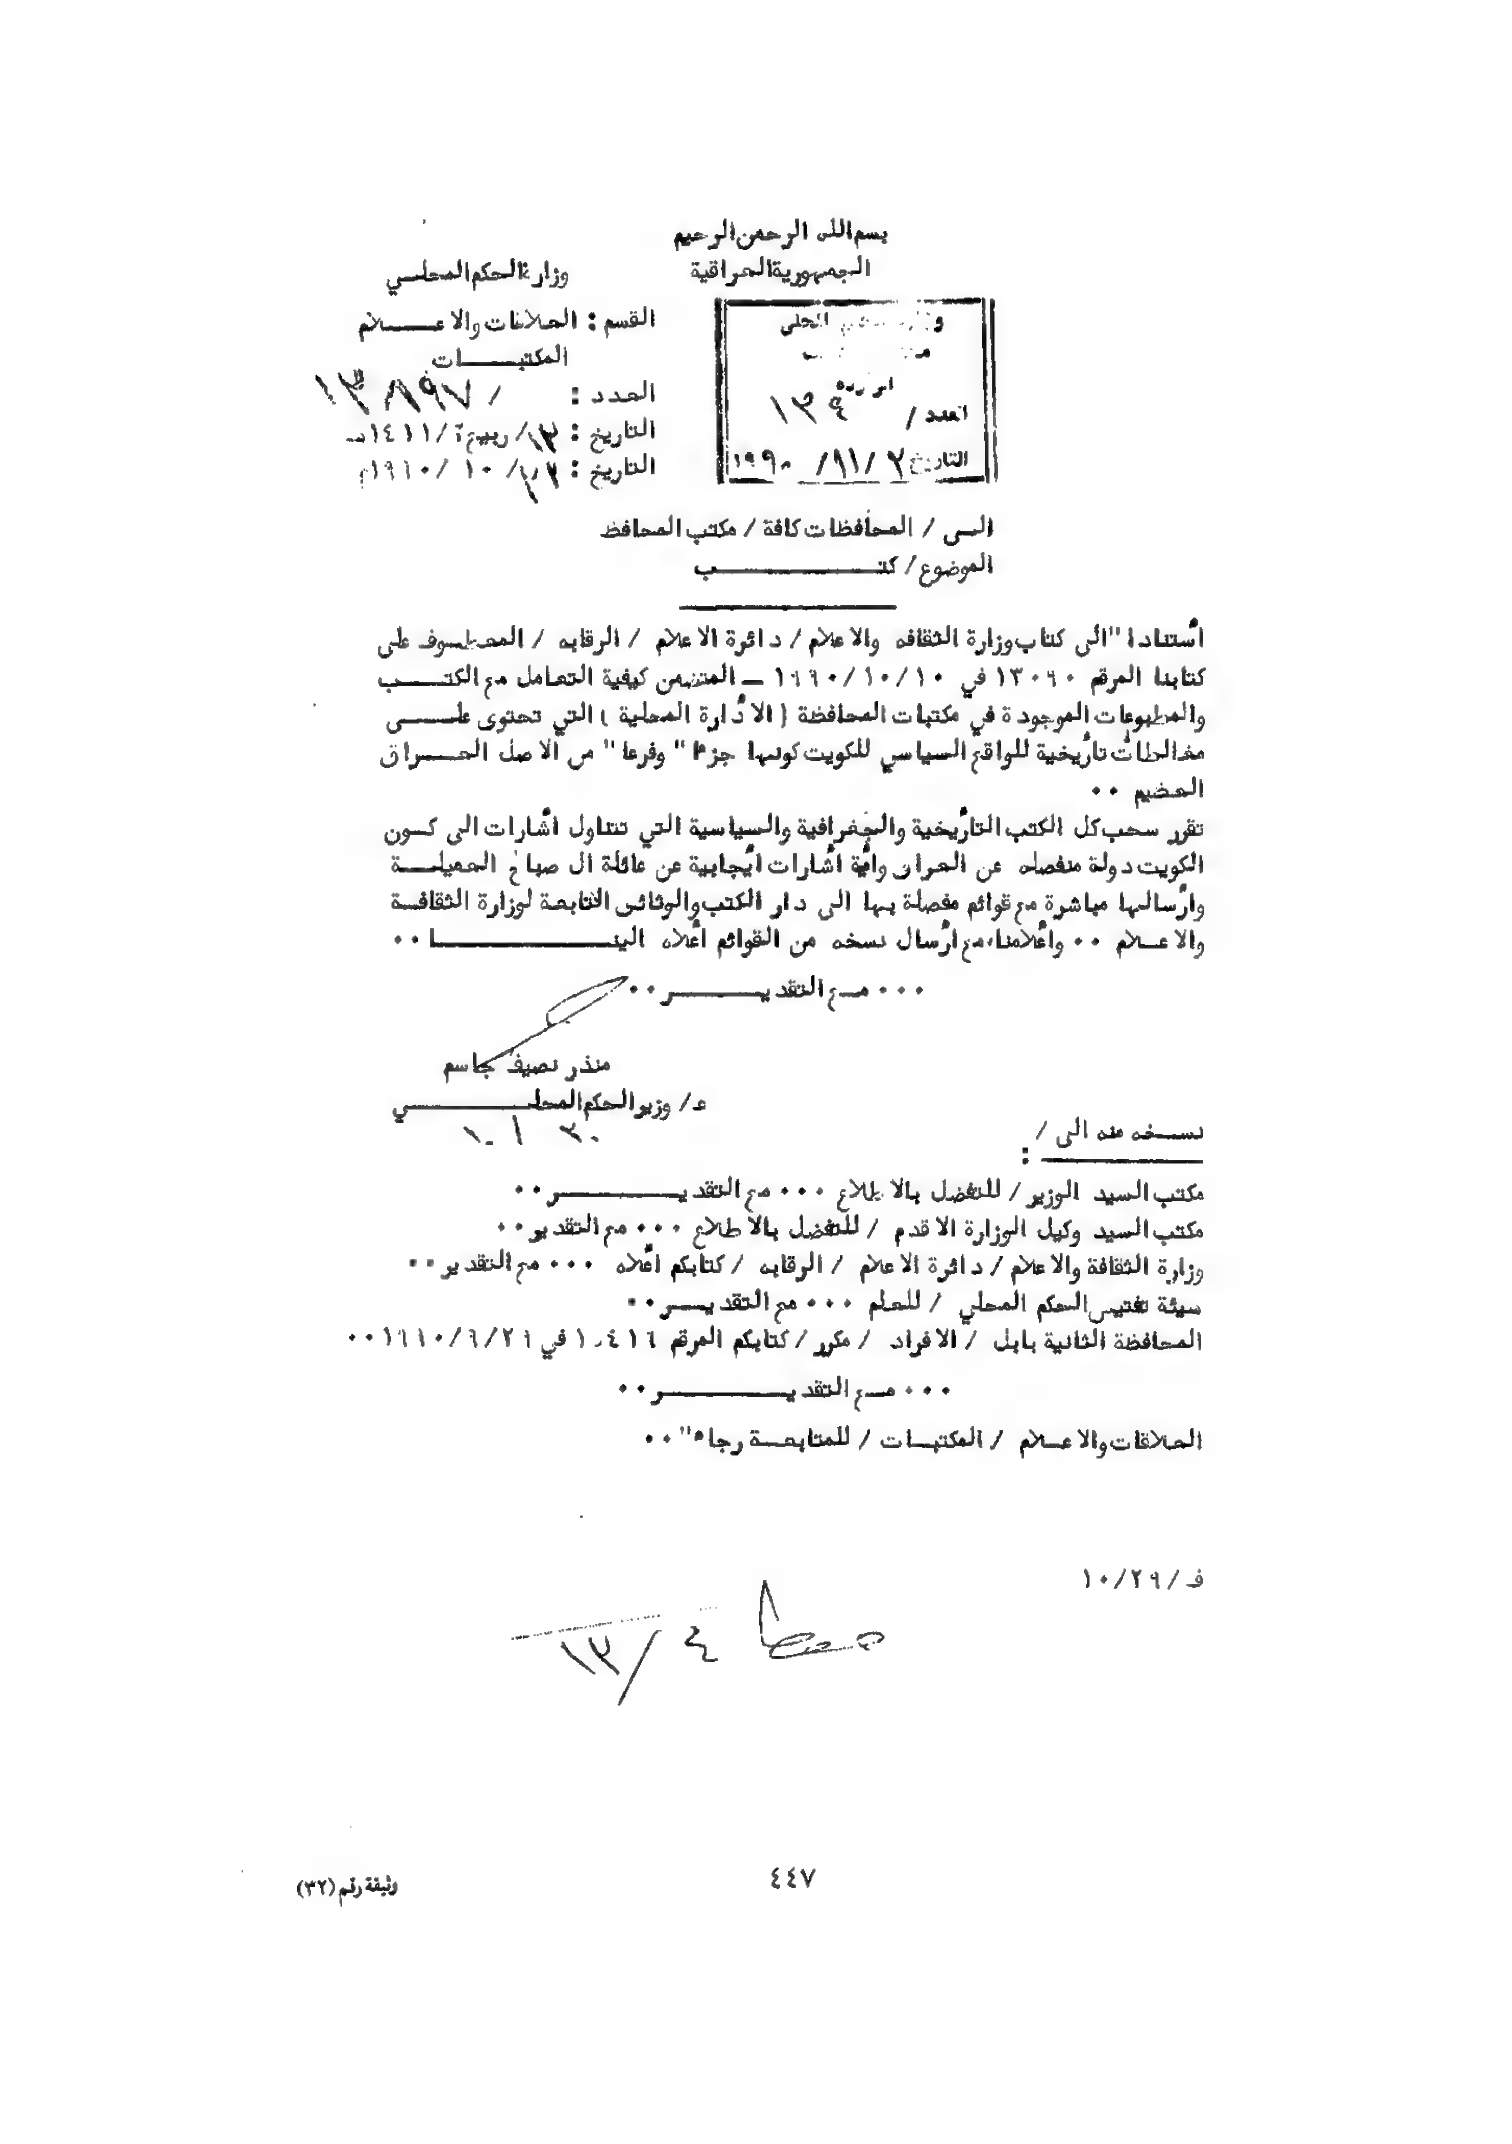 بسم الله الرحمن الرحيم
الجمهورية العراقية
وزارة الحكم المحلــي
القسم : العلاقات والاعـــــلام
المكتبـــــات
العدد : / ١٣٨٩٧
التاريخ : / ربيع٢ /١٤١١هـ
التاريخ : / ١٠ /١٩٩٠م
المحلي
الواردة
العدد / ١٣٤
التاريخ ٢ /١١/ ١٩٩٠
الــى / المحافظات كافة / مكتب المحافظ
الموضوع / كتــــــــــب
أستنادا "الى كتاب وزارة الثقافه والاعلام / دائرة الاعلام / الرقابه / المعطـوف على
كتابنا المرقم ١٣٠٩٠ في ١٩٩٠/١٠/١٠ ــ المتضمن كيفية التعامل مع الكتـــــب
والمطبوعات الموجودة في مكتبات المحافظة ( الأدارة المحلية ) التي تحتوى علـــــى
مغالطات تأريخية للواقع السياسي للكويت كونها جزءا " وفرعا " من الاصل العـــراق
العضيم ٠٠
تقرر سحب كل الكتب التأريخية والجغرافية والسياسية التي تتناول أشارات الى كــون
الكويت دولة منفصله عن العراق وأية أشارات أيجابية عن عائلة ال صباح العميلـــة
وأرسالها مباشرة مع قوائم مفصلة بها الى دار الكتب والوثائق التابعة لوزارة الثقافــة
والاعــلام ٠٠ وأعلامنا، مع أرسال نسخه من القوائم أعلاه الينـــــــــــا ٠٠
٠٠٠ مــع التقديــــــــر ٠٠
منذر نصيف جاسم
ع/ وزير الحكم المحلـــــــــي
٣٠ / ١٠
نســخه منه الى /
:
مكتب السيد الوزير / للتفضل بالاطلاع ٠٠٠ مع التقديــــــــــر ٠٠
مكتب السيد وكيل الوزارة الاقدم / للتفضل بالاطلاع ٠٠٠ مع التقدير ٠٠
وزارة الثقافة والاعلام / دائرة الاعلام / الرقابه / كتابكم أعلاه ٠٠٠ مع التقدير ٠٠
هيئة تفتيش الحكم المحلي / للعلم ٠٠٠ مع التقديـــر ٠٠
المحافظة الثانية بابل / الافراد / مكرر / كتابكم المرقم ١٠٤١٦ في ١٩٩٠/٩/٢٩ ٠٠
٠٠٠ مــع التقديــــــــــر ٠٠
العلاقات والاعــلام / المكتبــات / للمتابعــة رجاء" ٠٠
فـ / ١٠/٢٩
١٣ / ٤
٤٤٧
وثيقة رقم (٣٢)